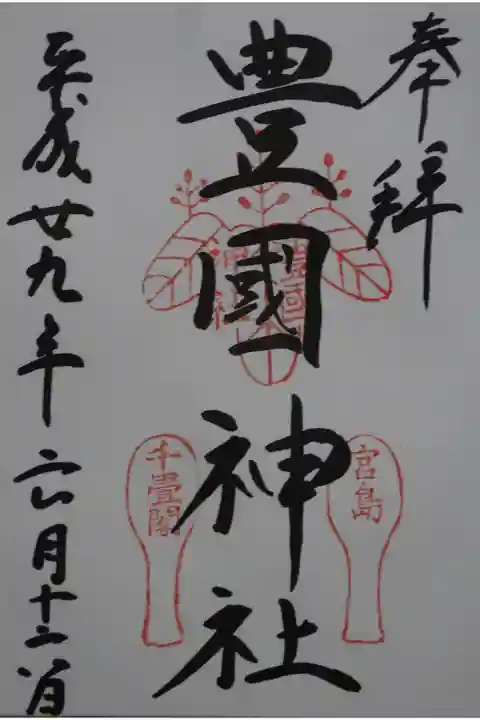 奉拝
豊國神社
豊國
神社
宮島
千畳閣
平成廿九年六月十二日